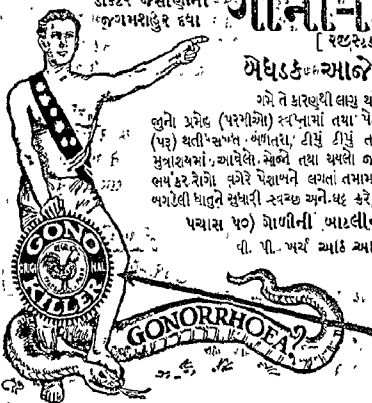 ડોક્ટર જસાણીની
જગમશહુર દવા
ગોનોકી
[ રજીસ્ટર્ડ
બેધડક આજે
ગમે તે કારણથી લાગુ થ
જુનો પ્રમેહ (પરમીઓ) સ્વપ્નામાં તથા પે
(પરૂ) થતી સખ્ત બળતરા, ટીપું ટીપું ત
મુત્રાશયમાં આવેલો સોજો તથા થયેલો જ
ભયંકર રોગો વગેરે પેશાબને લગતાં તમામ
બગડેલી ધાતુને સુધારી સ્વચ્છ અને ઘટ્ટ કરે
પચાસ ૫૦) ગોળીની બાટલીન
વી. પી. ખર્ચ આઠ આ
GONO
KILLER
GONORRHOEA?